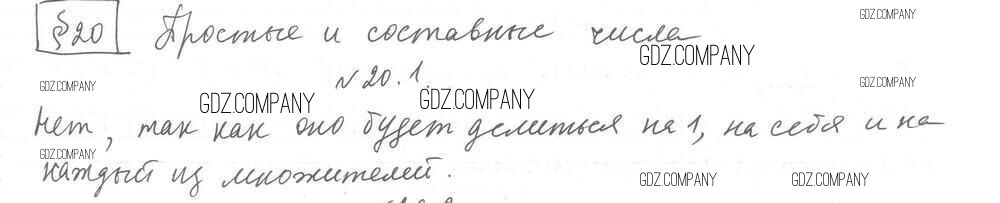 §20 Простые и составные числа
GDZ.COMPANY
GDZ.COMPANY
№ 20.1.
GDZ.COMPANY
GDZ.COMPANY
GDZ.COMPANY
GDZ.COMPANY
Нет, так как оно будет делиться на 1, на себя и на
GDZ.COMPANY
каждый из множителей.
GDZ.COMPANY
GDZ.COMPANY